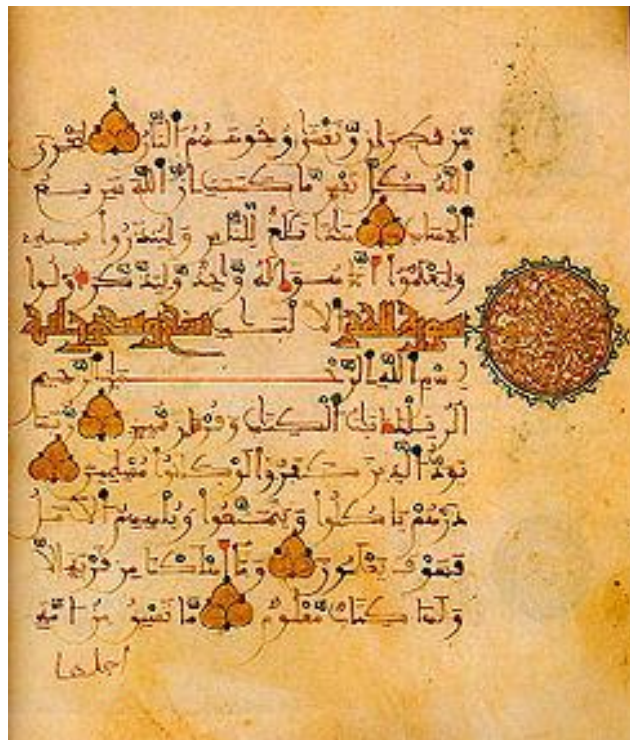 من قطران وتغشى وجوههم النار ليجزي
الله كل نفس ما كسبت إن الله سريع
الحساب هذا بلغ للناس ولينذروا به
وليعلموا أنما هو إله وحد وليذكر أولوا
سورة الحجر الالبب
بسم الله الرحمن الرحيم
الر تلك ءايت الكتب وقرءان مبين ربما
يود الذين كفروا لو كانوا مسلمين
ذرهم ياكلوا ويتمتعوا ويلههم الامل
فسوف يعلمون وما أهلكنا من قرية إلا
ولها كتاب معلوم ما تسبق من أمة
اجلها